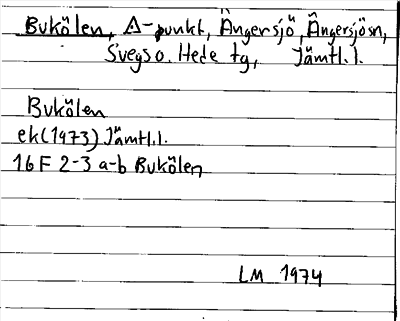 Bukölen, Δ-punkt, Ängersjö, Ängersjösn,
Svegs o. Hede tg, Jämtl.l.
Bukölen
ek(1973) Jämtl.l.
16 F 2-3 a-b Bukölen
LM 1974